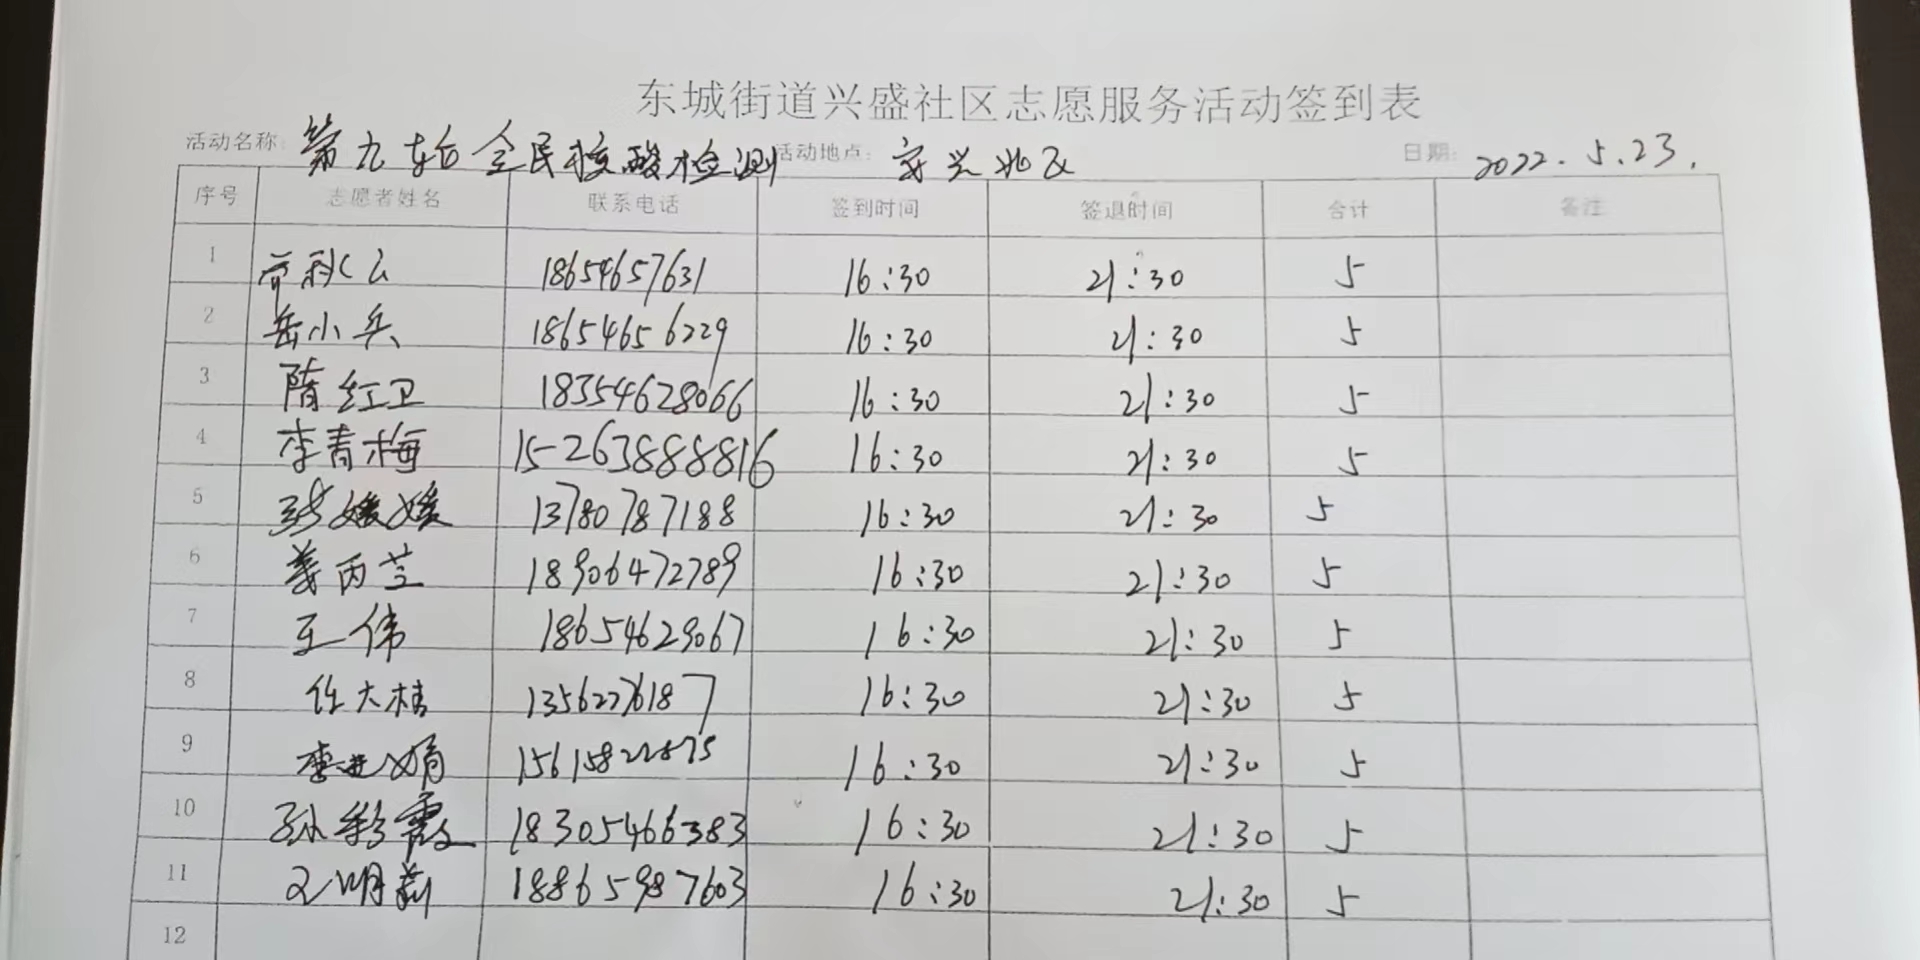 东城街道兴盛社区志愿服务活动签到表
活动名称: 第九轮全民核酸检测 活动地点: 安兴北区 日期: 2022.5.23.
序号 志愿者姓名 联系电话 签到时间 签退时间 合计 备注
1 18654657631 16:30 21:30 5
2 岳小兵 18654656229 16:30 21:30 5
3 隋红卫 18354628066 16:30 21:30 5
4 李青梅 15263888816 16:30 21:30 5
5 张媛媛 13780787188 16:30 21:30 5
6 姜丙兰 18906472789 16:30 21:30 5
7 王伟 18654629067 16:30 21:30 5
8 任大桂 13562276187 16:30 21:30 5
9 16:30 21:30 5
10 孙彩霞 18305466383 16:30 21:30 5
11 18865987603 16:30 21:30 5
12